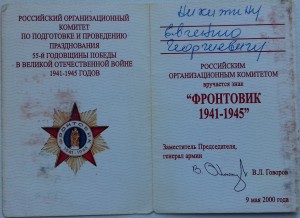 РОССИЙСКИЙ ОРГАНИЗАЦИОННЫЙ
КОМИТЕТ
ПО ПОДГОТОВКЕ И ПРОВЕДЕНИЮ
ПРАЗДНОВАНИЯ
55-Й ГОДОВЩИНЫ ПОБЕДЫ
В ВЕЛИКОЙ ОТЕЧЕСТВЕННОЙ ВОЙНЕ
1941-1945 ГОДОВ
ФРОНТОВИК
1941-1945
Никитину
Евгению
Георгиевичу
РОССИЙСКИМ
ОРГАНИЗАЦИОННЫМ КОМИТЕТОМ
вручается знак
"ФРОНТОВИК
1941-1945"
Заместитель Председателя,
генерал армии
В.Л. Говоров
9 мая 2000 года